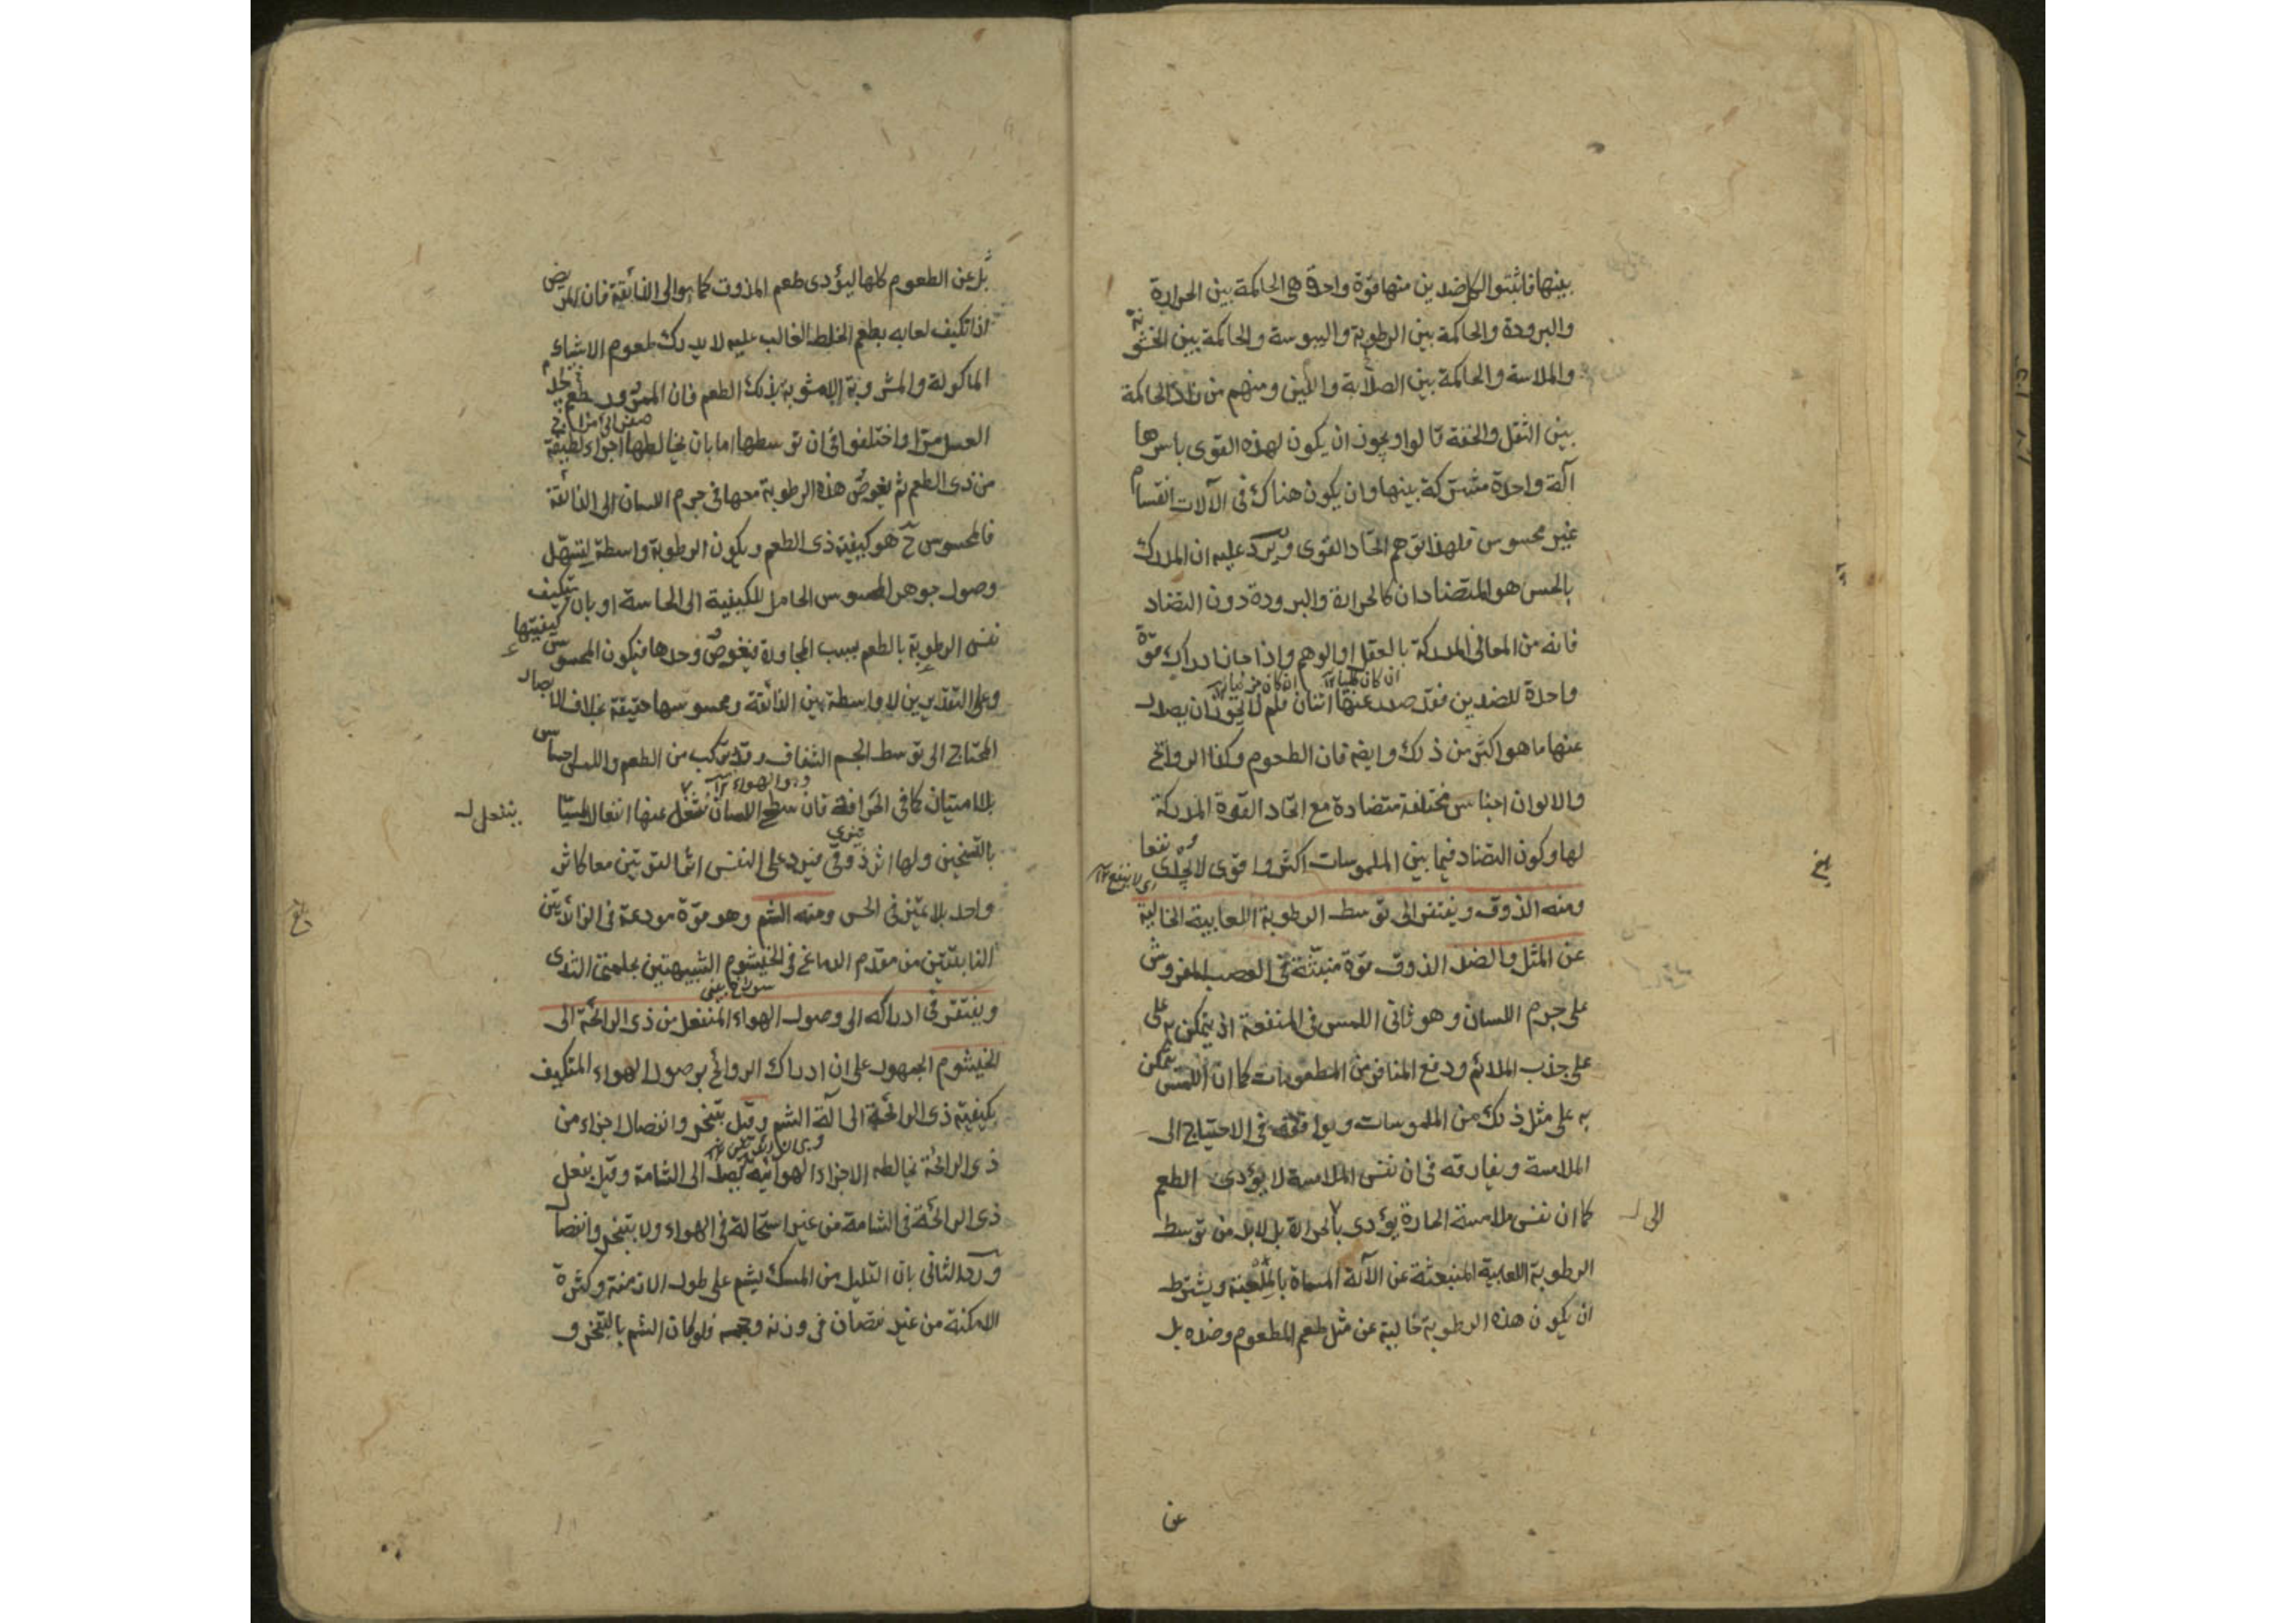 بينها فاثبتوا لكل ضدين منها قوة واحدة هى الحاكمة بين الحرارة
والبرودة والحاكمة بين الرطوبة واليبوسة والحاكمة بين الخشونة
والملاسة والحاكمة بين الصلابة واللين ومنهم من زاد الحاكمة
بين الثقل والخفة قالوا ويجوز ان يكون لهذه القوى باسرها
آلة واحدة مشتركة بينها وان يكون هناك فى الآلات انقسام
غير محسوس فلهذا توهم اتحاد القوى ويرد عليه ان المدرك
بالحس هو المتضادان كالحرارة والبرودة دون التضاد
فانه من المعانى المدركة بالعقل او الوهم واذا جاز ادراك قوة
واحدة للضدين فقد صدر عنها اثنان فلم لا يجوز ان يصدر
عنها ما هو اكثر من ذلك وايضه فان الطعوم وكذا الروائح
والالوان اجناس مختلفة متضادة مع اتحاد القوة المدركة
لها وكون التضاد فيما بين الملموسات اكثر واقوى لا يجدى نفعا
اى لا ينفع ١٢
ومنه الذوق ويفتقر الى توسط الرطوبة اللعابية الخالية
عن المثل والضد الذوق قوة منبثة فى العصب المفروش
على جرم اللسان وهو ثانى اللمس فى المنفعة اذ يتمكن به على
على جذب الملائم ودفع المنافر من المطعومات كما ان اللمس يتمكن
به على مثل ذلك من الملموسات ويوافقه فى الاحتياج الى
الملامسة ويفارقه فى ان نفس الملامسة لا يؤدى الطعم
كما ان نفس ملامسة الحارة يؤدى بالحرارة بل لابد من توسط
الى
الرطوبة اللعابية المنبعثة عن الآلة المسماة بالملعبة ويشترط
ان يكون هذه الرطوبة خالية عن مثل طعم المطعوم وضده بل
عن
بل عن الطعوم كلها ليؤدى طعم المذوق كما هو الى الذائقة فان المريض
اذا تكيف لعابه بطعم الخلط الغالب عليه لا يدرك طعوم الاشياء
الماكولة والمشروبة الا مشوبة بذلك الطعم فان الممرور يجد طعم
العسل مرا واختلفوا فى ان توسطها اما بان يخالطها اجزاء لطيفة
من ذى الطعم ثم يغوص هذه الرطوبة معها فى جرم اللسان الى الذائقة
فالمحسوس ح هو كيفية ذى الطعم ويكون الرطوبة واسطة لتسهل
وصول جوهر المحسوس الحامل للكيفية الى الحاسة او بان يتكيف
نفس الرطوبة بالطعم بسبب المجاورة فيغوص وحدها فيكون المحسوس كيفيتها
وعلى التقديرين لا واسطة بين الذائقة ومحسوسها حقيقة بخلاف الابصار
المحتاج الى توسط الجسم الشفاف وقد يتركب من الطعم واللمس احساس
وهو الهواء ١٢
بلا امتياز كما فى الحرافة فان سطح اللسان ينفعل عنها انفعالا لمسيا
ينفعل
بالتسخين ولها اثر ذوقى فيرد على النفس اثر القوتين معا كاثر
واحد بلا تميز فى الحس ومنه الشم وهو قوة مودعة فى الزائدتين
النابتتين من مقدم الدماغ فى الخيشوم الشبيهتين بحلمتى الثدى
سوراخ بينى
ويفتقر فى ادراكه الى وصول الهواء المنفعل من ذى الرائحة الى
الخيشوم الجمهور على ان ادراك الروائح بوصول الهواء المتكيف
بكيفية ذى الرائحة الى آلة الشم وقيل بتبخر وانفصال اجزاء من
ذى الرائحة يخالطه الاجزاء الهوائية يصل الى الشامة وقيل بفعل
ذى الرائحة فى الشامة من غير استحالة فى الهواء ولا بتبخر وانفصال
ورد الثانى بان القليل من المسك يشم على طول الازمنة وكثرة
الامكنة من غير نقصان فى وزنه وحجمه فلو كان الشم بالتبخر و